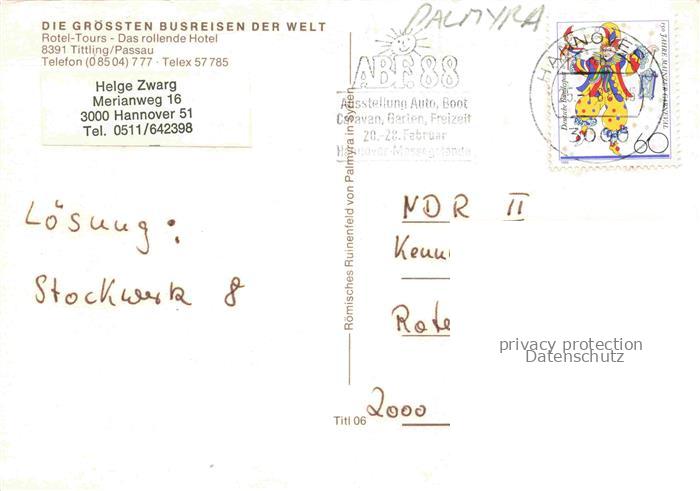 DIE GRÖSSTEN BUSREISEN DER WELT
Rotel-Tours - Das rollende Hotel
8391 Tittling/Passau
Telefon (0 85 04) 777 · Telex 57 785
Helge Zwarg
Merianweg 16
3000 Hannover 51
Tel. 0511/642398
PALMYRA
ABF 88
Ausstellung Auto, Boot
Caravan, Garten, Freizeit
20.-28. Februar
Hannover-Messegelände
HANNOVER
Deutsche Bundespost
150 JAHRE MAINZER CARNEVAL
60
Lösung:
Stockwerk 8
Römisches Ruinenfeld von Palmyra in Syrien
Titl 06
NDR II
2000
privacy protection
Datenschutz